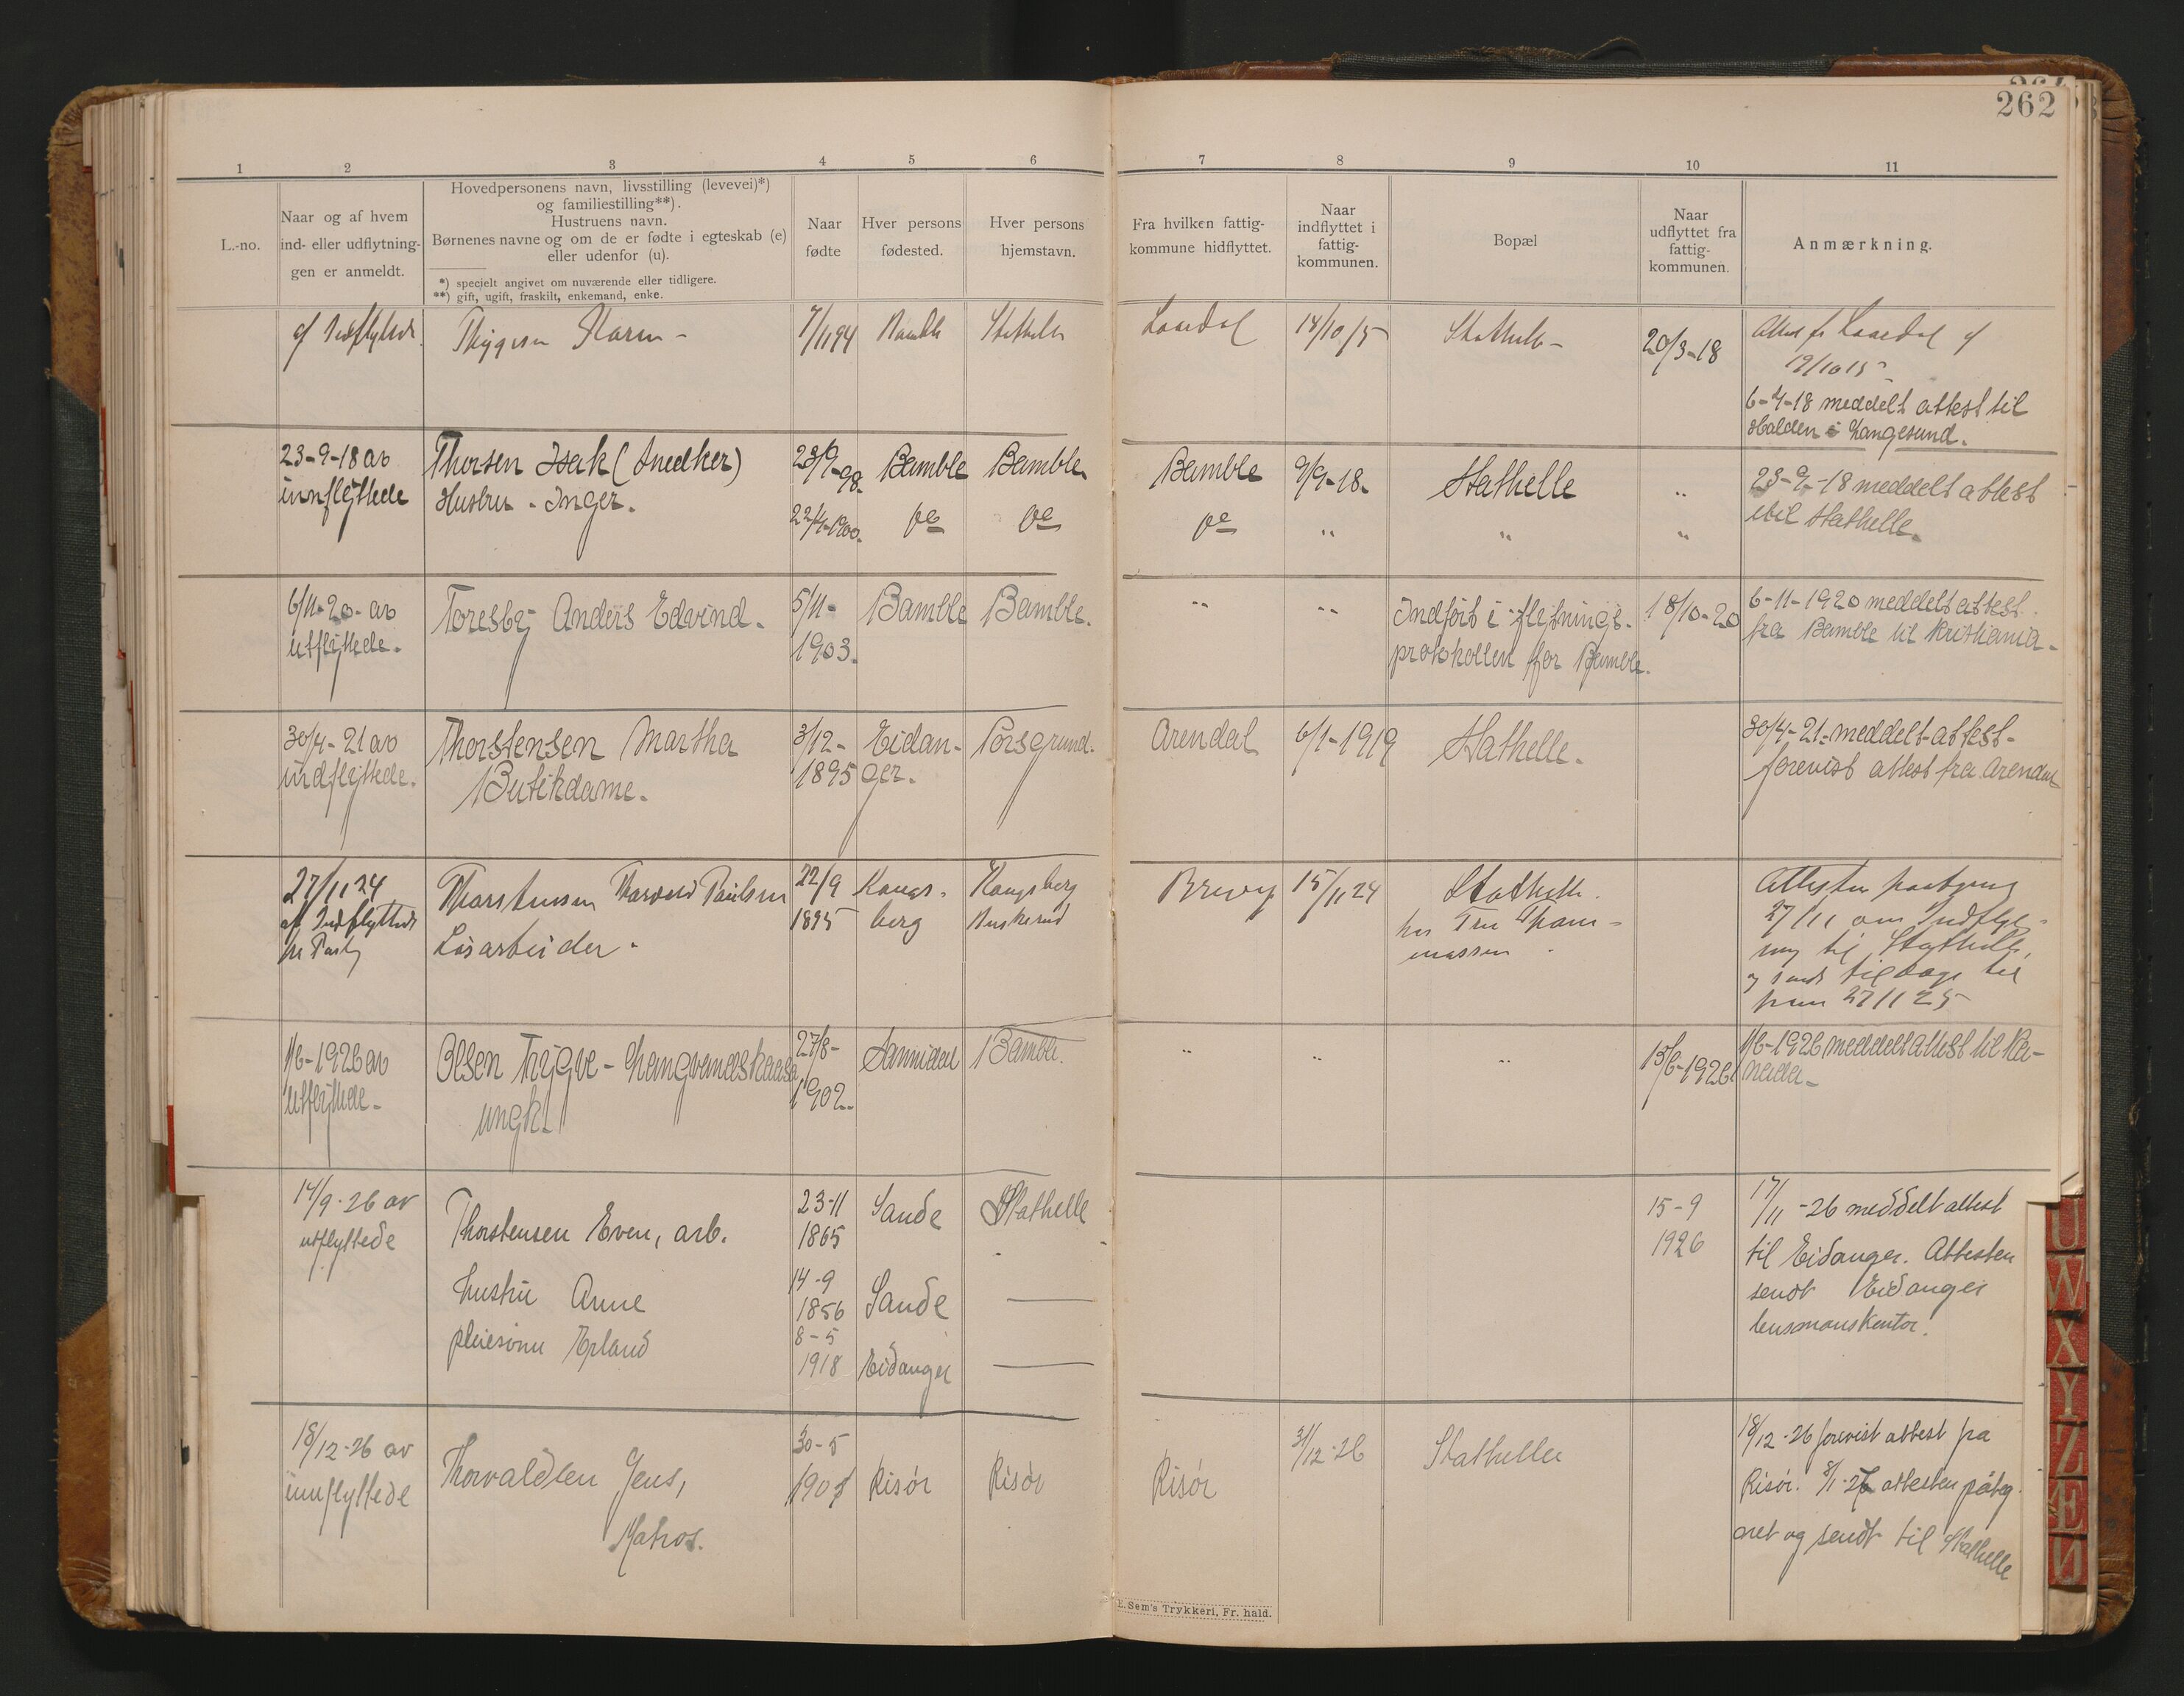 262
1 2 3 4 5 6 7 8 9 10 11
L.-no.
Naar og af hvem
ind- eller udflytning-
gen er anmeldt.
Hovedpersonens navn, livsstilling (levevei)*)
og familiestilling**).
Hustruens navn.
Børnenes navne og om de er fødte i egteskab (e)
eller udenfor (u).
*) specielt angivet om nuværende eller tidligere.
**) gift, ugift, fraskilt, enkemand, enke.
Naar
fødte
Hver persons
fødested.
Hver persons
hjemstavn.
Fra hvilken fattig-
kommune hidflyttet.
Naar
indflyttet i
fattig-
kommunen.
Bopæl
Naar
udflyttet fra
fattig-
kommunen.
Anmærkning.
af Indflyttede
Thygesen Karen -
7/11 94
Bamble
Stathelle
Laardal
14/10 15
Stathelle -
20/3-18
Attest fr Laardal af
19/10 15 -
6-4-18 meddelt attest til
Halden i Langesund.
23-9-18 av
innflyttede
Thorsen Isak (Snedker)
Hustru - Inger.
23/9-98.
22/4-1900.
Bamble
do
Bamble
do
Bamble
do
9/9-18.
"
Stathelle
"
"
"
23-9-18 meddelt attest
til Stathelle.
6/11-20 - av
utflyttede.
Toresby Anders Edvind.
5/11-
1903.
Bamble
Bamble.
"
"
Indført i flytnings-
prokkollen for Bamble.
18/10-20
6-11-1920 meddelt attest
fra Bamble til Kristiania.
30/4-21 av
indflyttede.
Thorstensen Martha
Butikdame.
3/12-
1895
Eidan-
ger.
Porsgrund.
Arendal
6/1-1919
Stathelle.
30/4-21- meddelt attest-
forevist attest fra Arendal
27/11 24
af Indflyttede
pr Post
Thorstensen Paulsen
Løsarbeider.
22/9
1895
Kongs-
berg
Kongsberg
Buskerud
Brevig
15/11 24
Stathelle.
hos Fru Thom-
massen
Attesten paategnet
27/11 om Indflyt-
ning til Stathelle,
og sendt tilbage til
ham 27/11 25
1/6-1926 av
utflyttede-
Olsen Trygve - Langvandskaasa
ungk.
27/8-
1902.
Sannidal
Bamble.
"
"
"
15/6-1926
1/6-1926 meddelt attest til Ka-
nada-
14/9-26 av
utflyttede
Thorstensen Even, arb.
hustru Anne
pleiesønn Erland
23-11
1865
14-9
1856
8-5
1918
Sande
Sande
Eidanger
Stathelle
15-9
1926
17/11-26 meddelt attest
til Eidanger. Attesten
sendt Eidanger
lensmanskontor.
18/12-26 av
innflyttede
Thorvaldsen Jens,
Matros.
30-5
Risør
Risør
Risør
31/12-26
Stathelle
18/12-26 forevist attest fra
Risør. 8/1-27 attesten påteg
net og sendt til Stathelle
E. Sem's Trykkeri, Fr. hald.
U
W
X
Y
Z
Æ
Ø